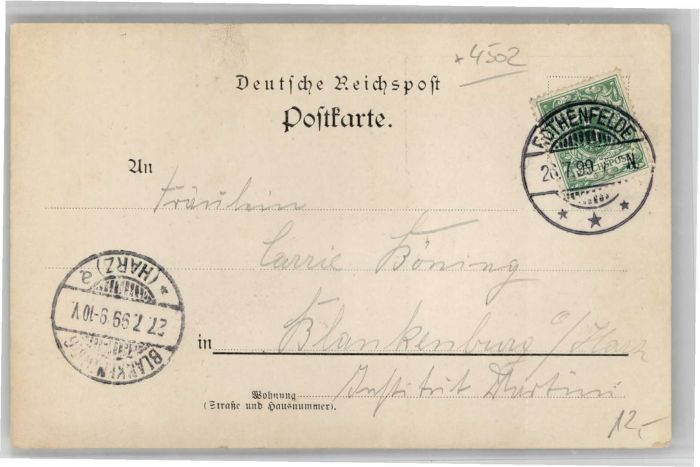 * 4502
Deutsche Reichspost
Postkarte.
ROTHENFELDE
26.7.99 N.
An
Fräulein
Carrie Böning
(HARZ) a
27.7.99 9-10V.
BLANKENBURG
in Blankenburg a/Harz
Institut Martini
Wohnung
(Straße und Hausnummer).
12,-